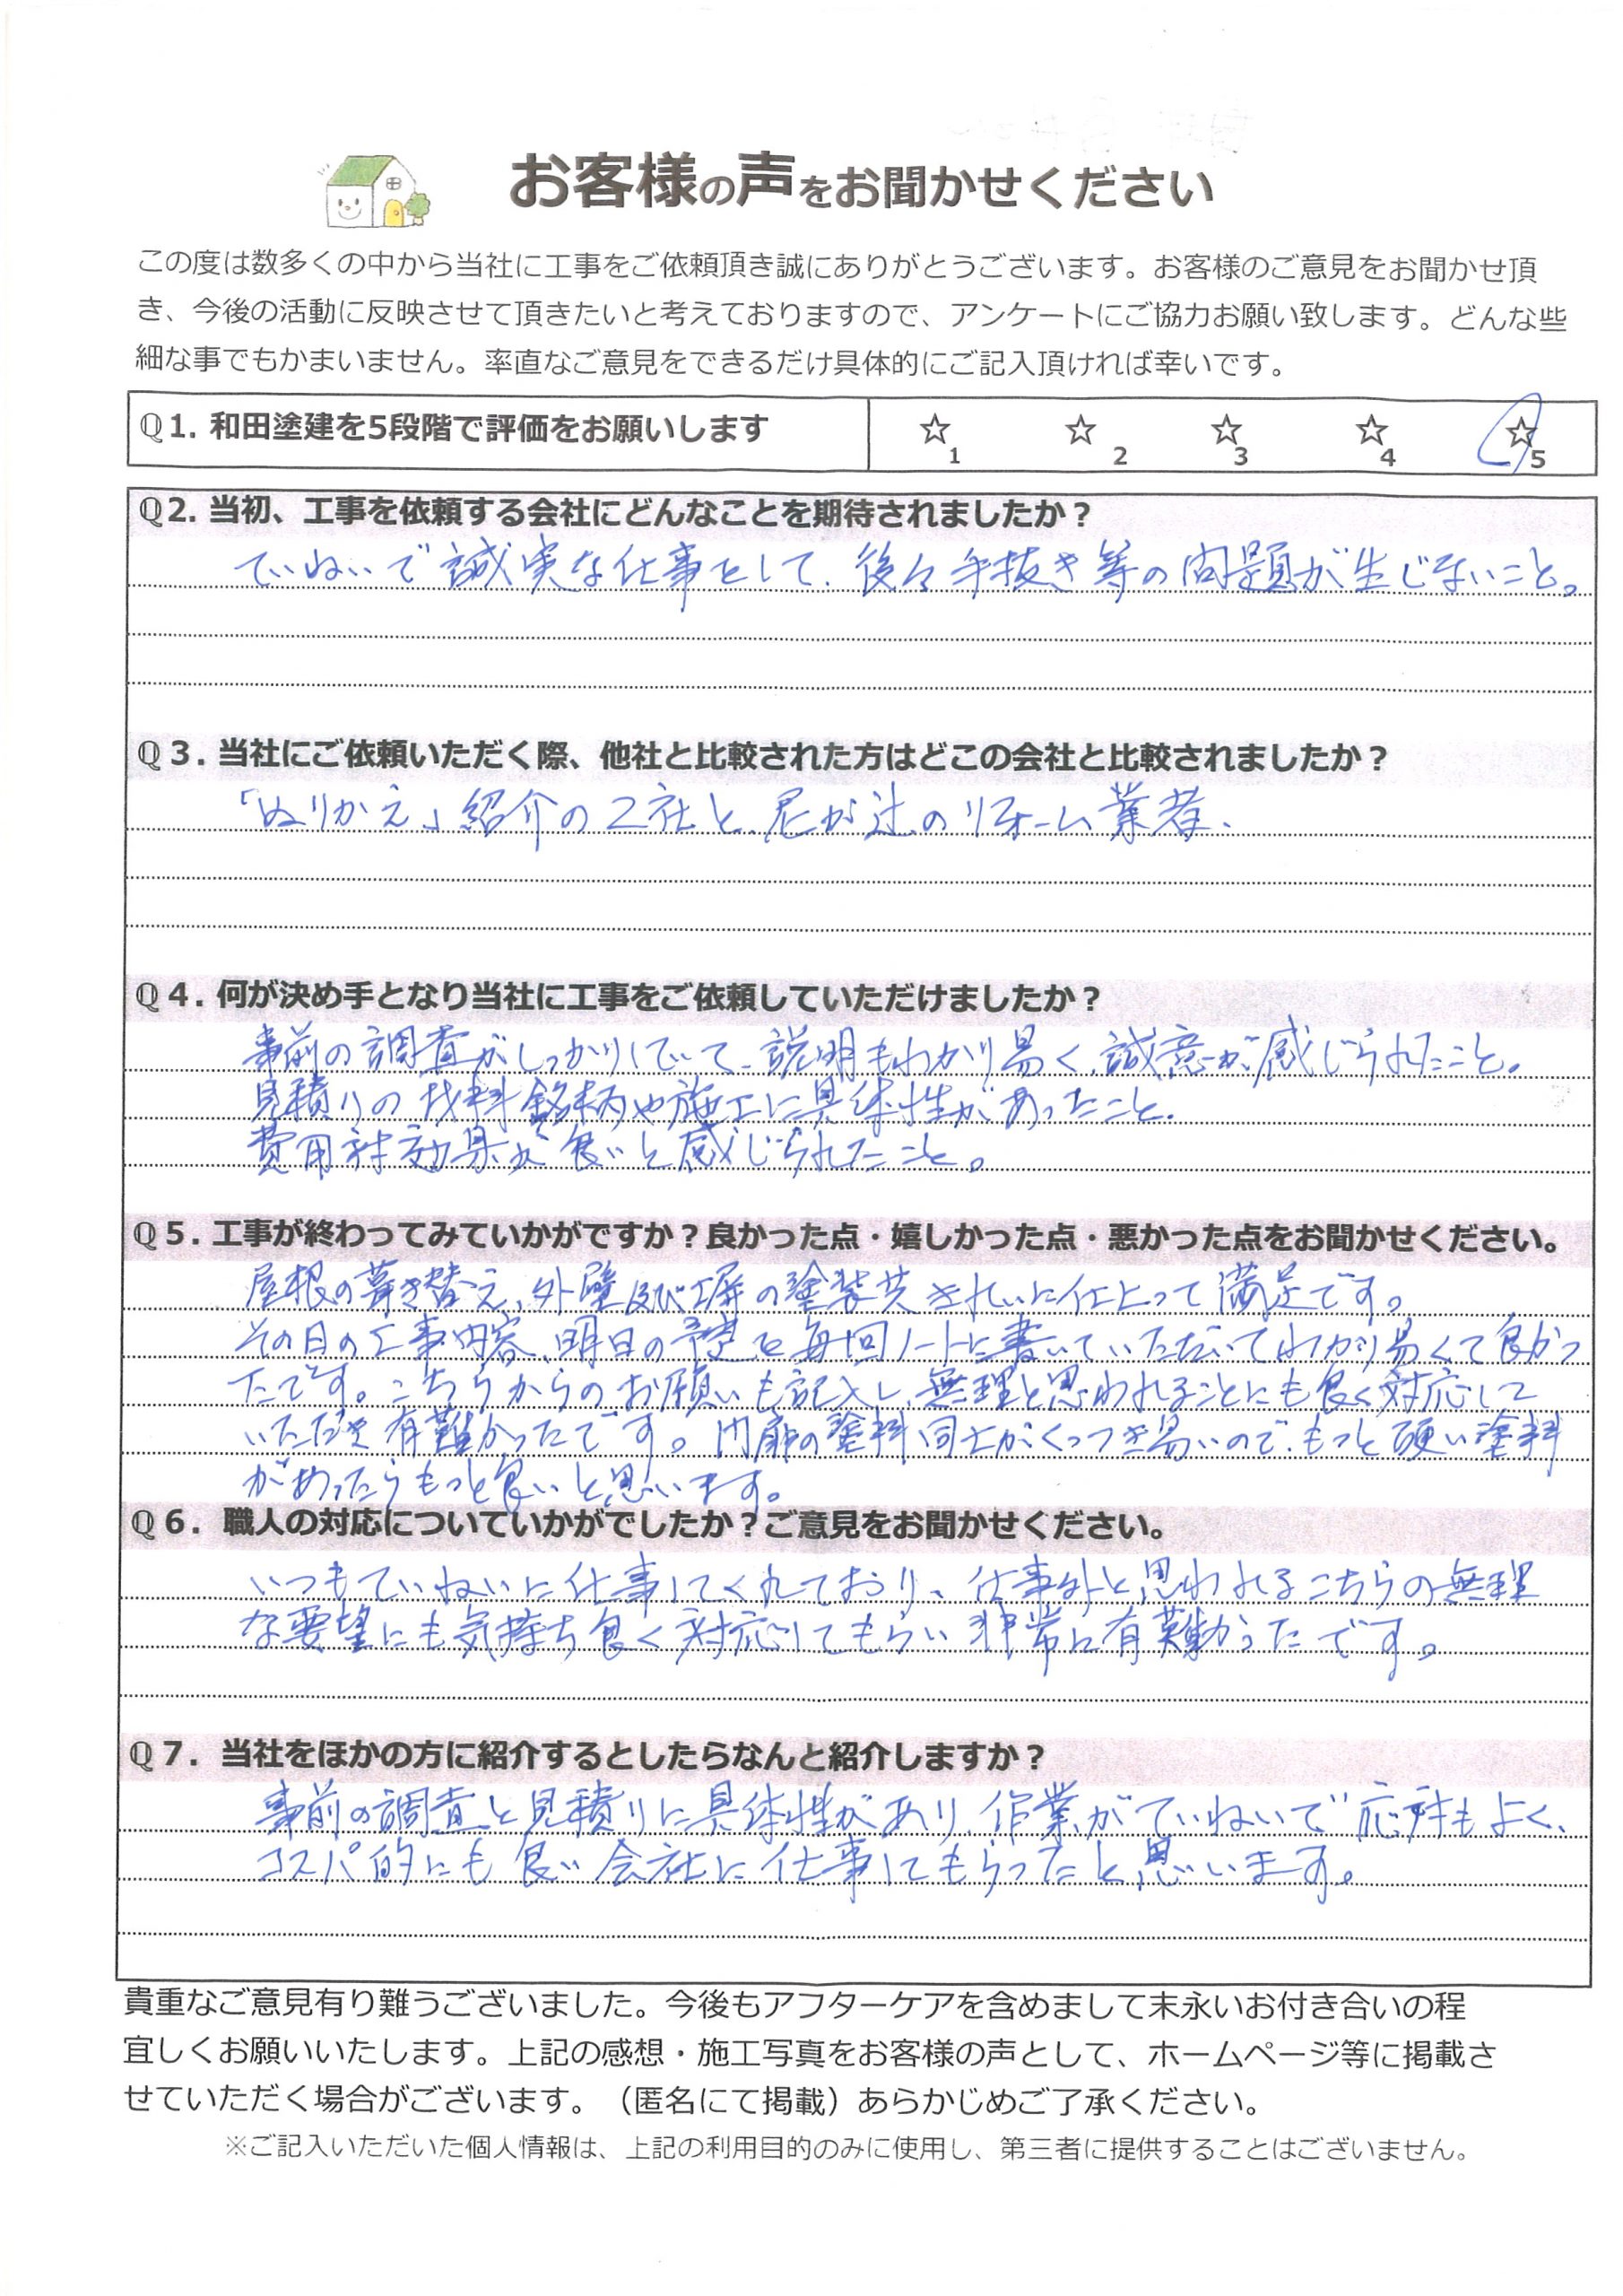 お客様の声をお聞かせください
この度は数多くの中から当社に工事をご依頼頂き誠にありがとうございます。お客様のご意見をお聞かせ頂
き、今後の活動に反映させて頂きたいと考えておりますので、アンケートにご協力お願い致します。どんな些
細な事でもかまいません。率直なご意見をできるだけ具体的にご記入頂ければ幸いです。
Q1. 和田塗建を5段階で評価をお願いします ☆1 ☆2 ☆3 ☆4 ☆5
Q2. 当初、工事を依頼する会社にどんなことを期待されましたか？
ていねいで誠実な仕事をして、後々手抜き等の問題が生じないこと。
Q３. 当社にご依頼いただく際、他社と比較された方はどこの会社と比較されましたか？
「ぬりかえ」紹介の2社と、尼が辻のリフォーム業者、
Q４. 何が決め手となり当社に工事をご依頼していただけましたか？
事前の調査がしっかりしていて、説明もわかり易く、誠意が感じられたこと。
見積りの材料銘柄や施工に具体性があったこと、
費用対効果が良いと感じられたこと。
Q５. 工事が終わってみていかがですか？良かった点・嬉しかった点・悪かった点をお聞かせください。
屋根の葺き替え、外壁及び塀の塗装共きれいに仕上って満足です。
その日の工事内容、明日の予定を毎回ノートに書いていただいてわかり易くて良かっ
たです。こちらからのお願いも記入し、無理と思われることにも良く対応して
いただき有難かったです。門扉の塗料同士がくっつき易いので、もっと硬い塗料
があったらもっと良いと思います。
Q６. 職人の対応についていかがでしたか？ご意見をお聞かせください。
いつもていねいに仕事してくれており、仕事外と思われるこちらの無理
な要望にも気持ち良く対応してもらい非常に有難かったです。
Q７. 当社をほかの方に紹介するとしたらなんと紹介しますか？
事前の調査と見積りに具体性があり、作業がていねいで応対もよく、
コスパ的にも良い会社に仕事してもらったと思います。
貴重なご意見有り難うございました。今後もアフターケアを含めまして末永いお付き合いの程
宜しくお願いいたします。上記の感想・施工写真をお客様の声として、ホームページ等に掲載さ
せていただく場合がございます。（匿名にて掲載）あらかじめご了承ください。
※ご記入いただいた個人情報は、上記の利用目的のみに使用し、第三者に提供することはございません。